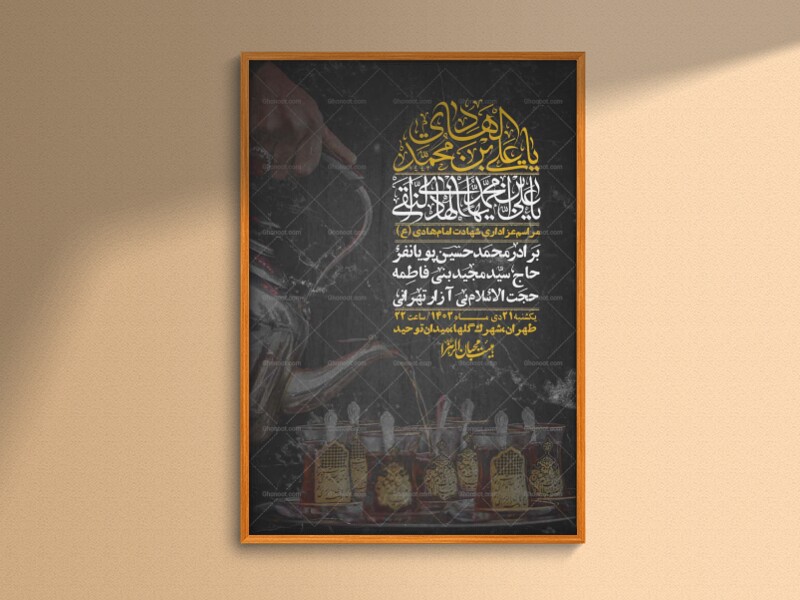 یا علی بن محمد الهادی
یا علی بن محمد ایها الهادی النقی
مراسم عزاداری شهادت امام هادی (ع)
برادر محمد حسین پویانفر
حاج سید مجید بنی فاطمه
حجت الاسلام بی آزار تهرانی
یکشنبه ۲۱ دی مــاه ۱۴۰۳ / ساعت ۲۲
طهران، شهرک گلها، میدان توحید
هیئت محبان الزهرا
Ghonoot.com